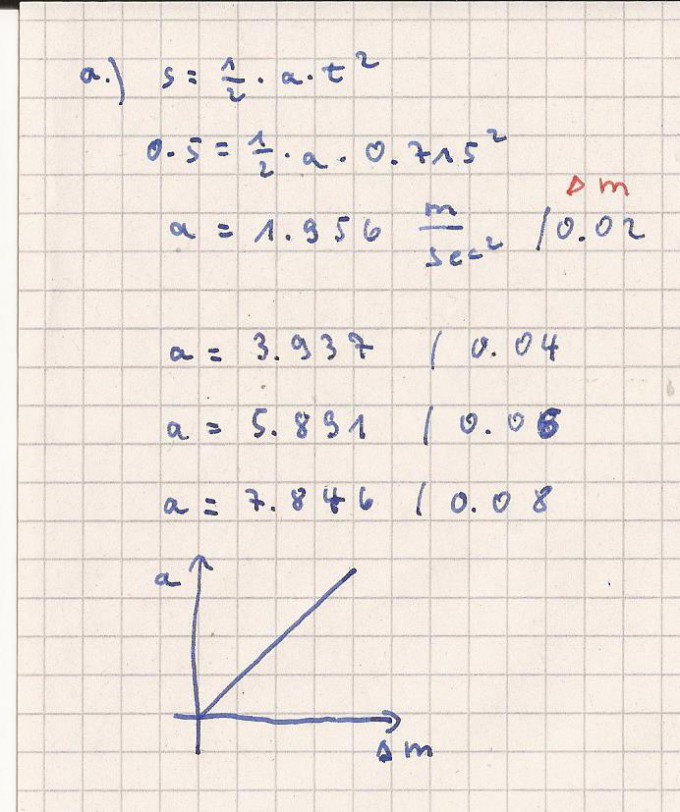 a.) s = 1/2 · a · t²
0.5 = 1/2 · a · 0.715²
Δ m
a = 1.956 m/sec² / 0.02
a = 3.937 / 0.04
a = 5.891 / 0.06
a = 7.846 / 0.08
a
Δ m